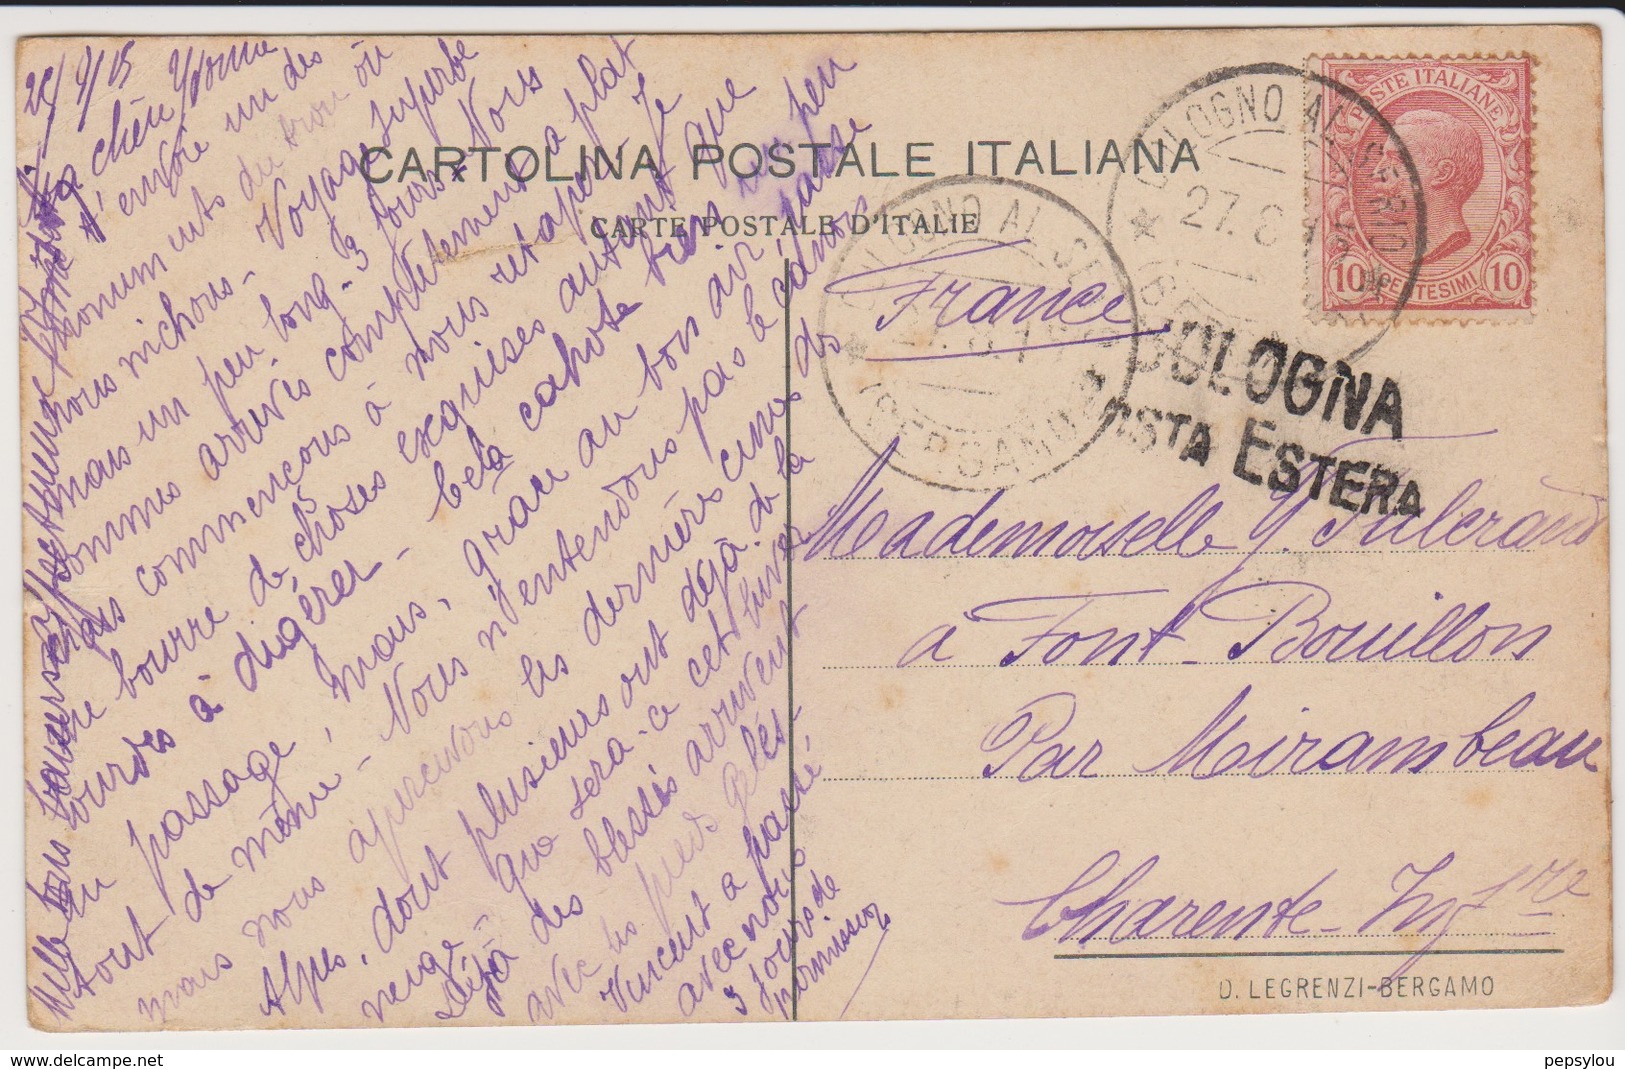 CARTOLINA POSTALE ITALIANA
CARTE POSTALE D'ITALIE
POSTE ITALIANE
10 CENTESIMI 10
27.8
(BERGAMO)
BOLOGNA
POSTA ESTERA
France
Mademoiselle Y. Fulcrand
à Font-Bouillon
Par Mirambeau
Charente-Infre
D. LEGRENZI-BERGAMO
chère Yvonne
t'envoie un des
monuments du trou où
nous nichons. Voyage superbe
mais un peu long. 3 jours. Nous
sommes arrivés complètement à plat
commençons à nous retaper. Je
bourre de choses exquises autant que
lourdes à digérer. bien un peu
au passage, mais, grâce au bon air, passe
tout de même. Nous n'entendons pas le canon
mais nous apercevons les dernières cimes des
Alpes, dont plusieurs ont déjà de la
neige. que sera-ce cet hiver
Déjà des blessés arrivent
avec les pieds gelés.
Vincent a passé
avec nous
3 jours de
permission
Mille bons baisers